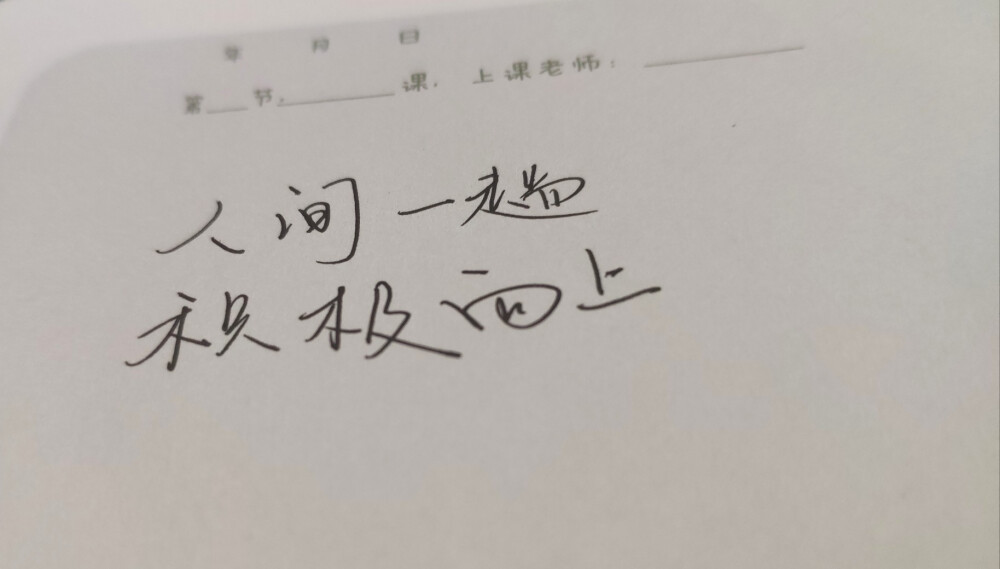 年 月 日
第___节,__________课, 上课老师:__________
人间一趟
积极向上